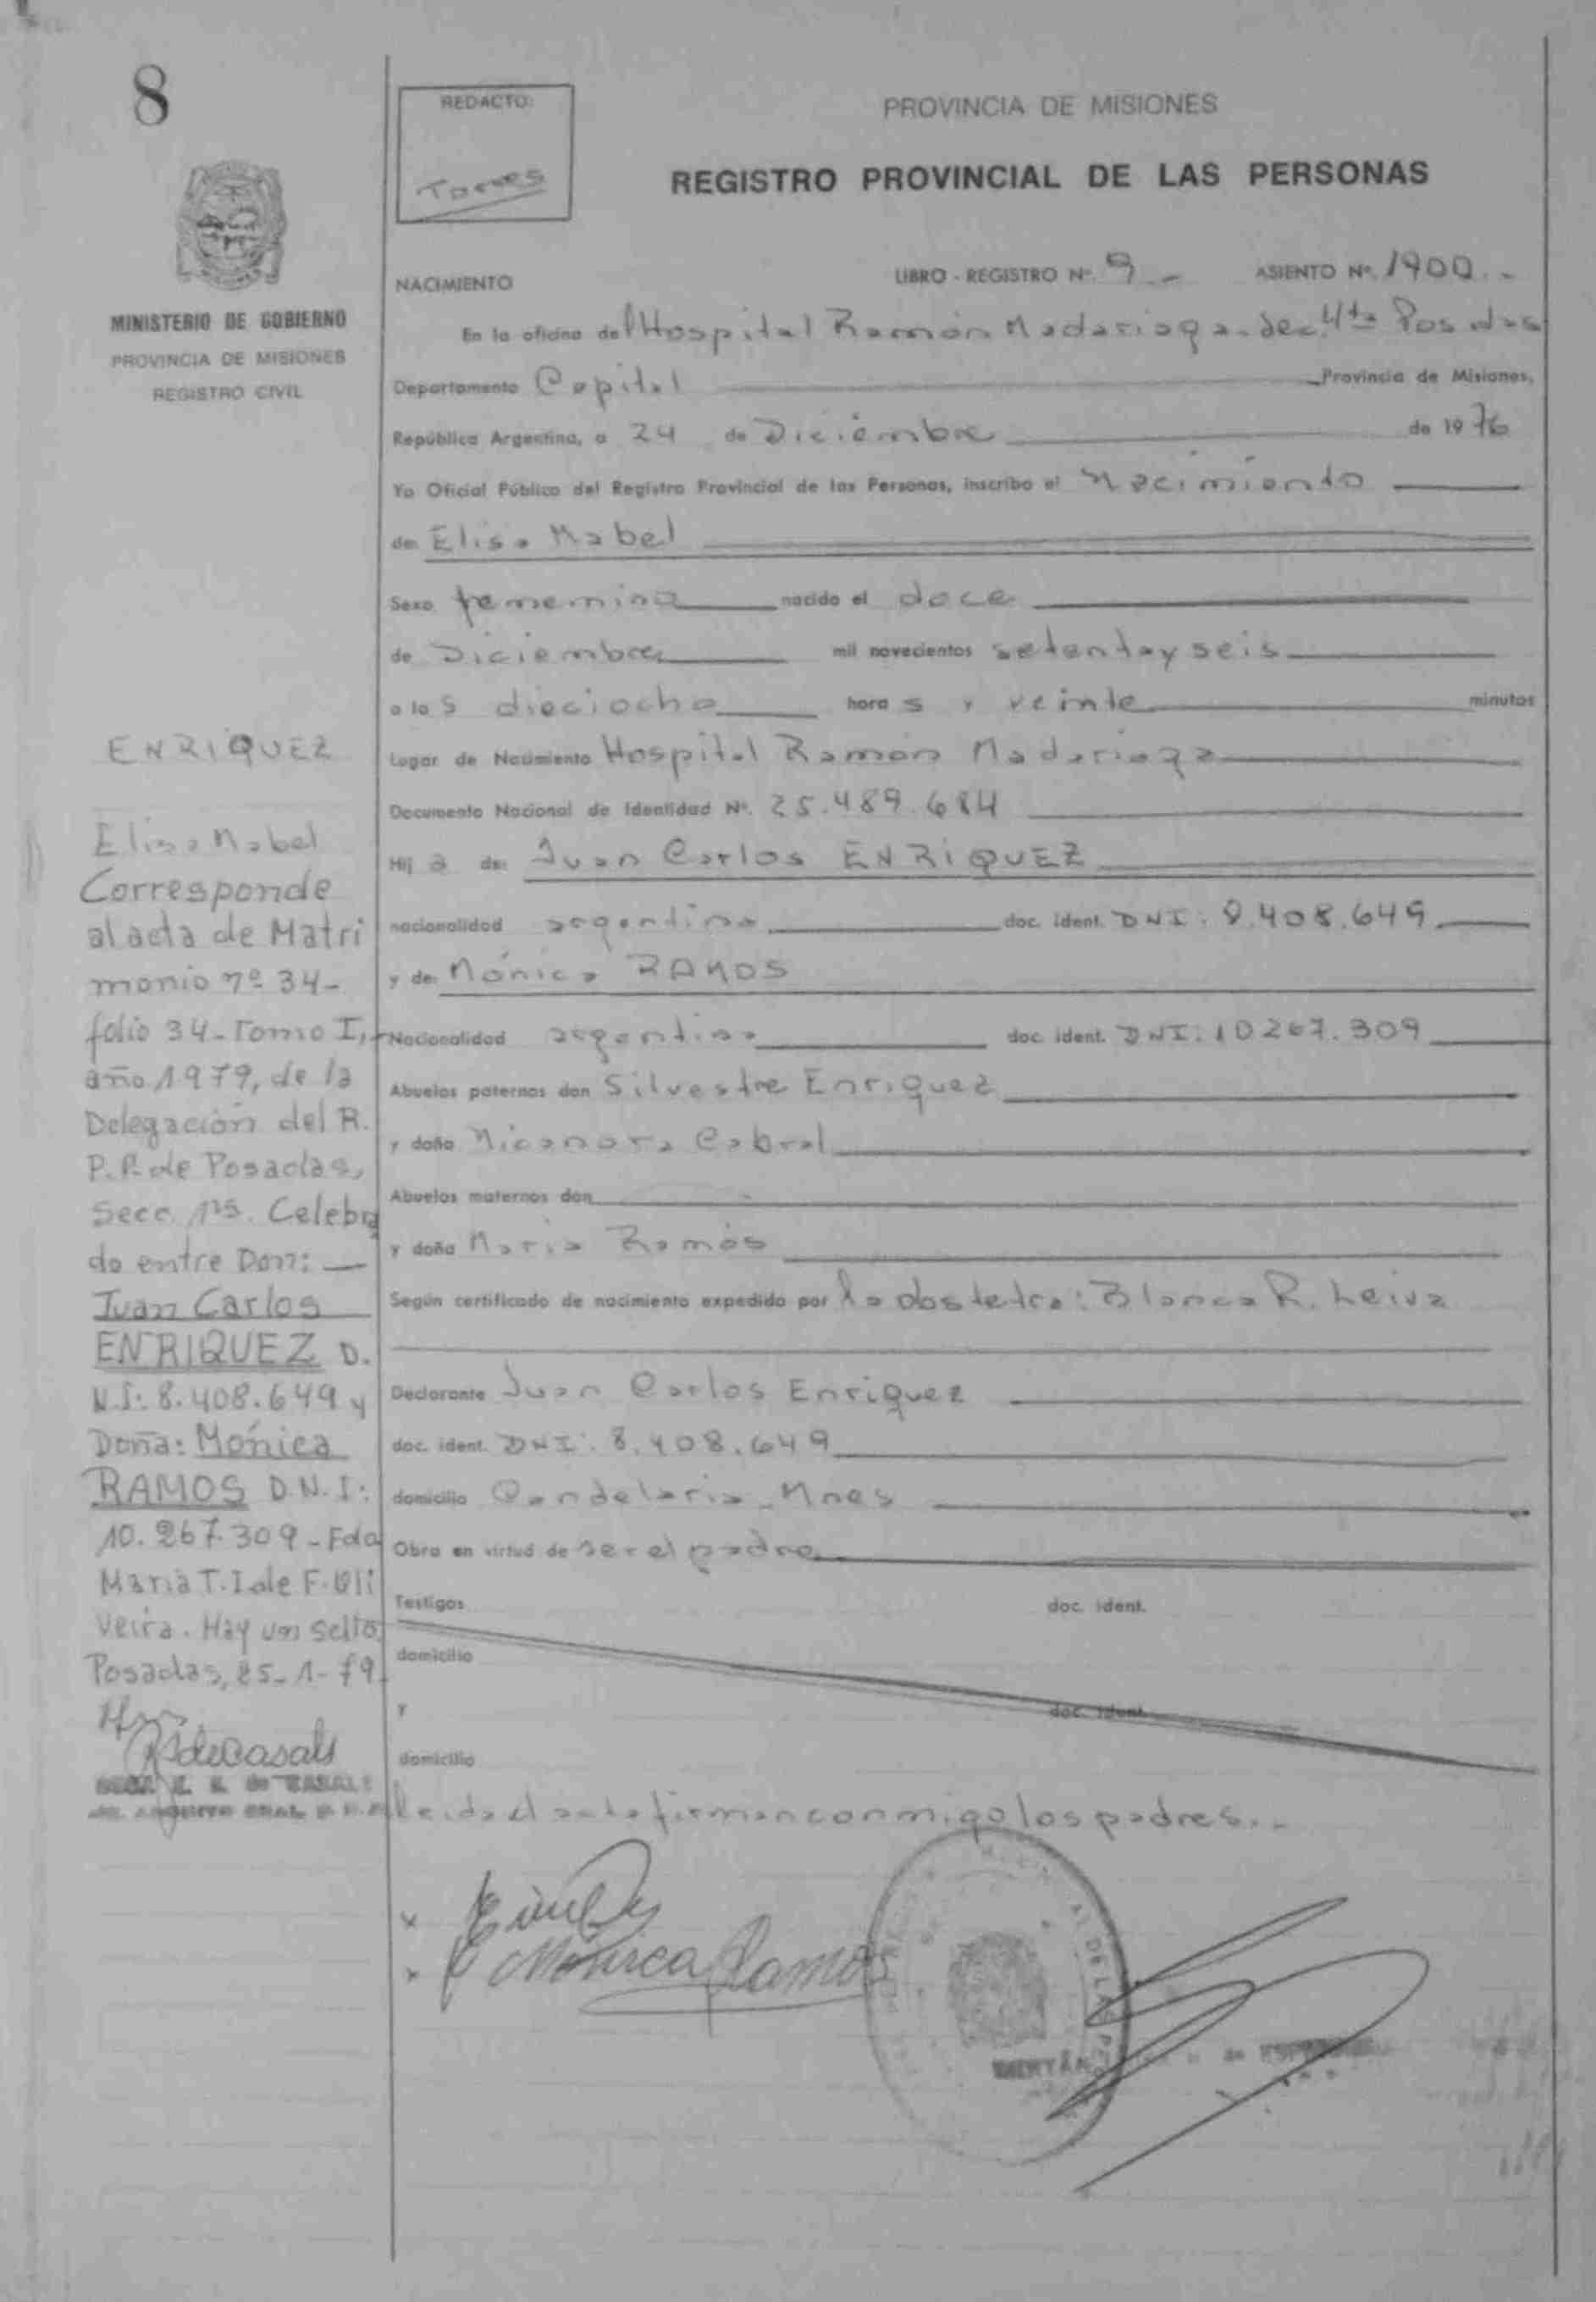 8
REDACTO:
Torres
PROVINCIA DE MISIONES
REGISTRO PROVINCIAL DE LAS PERSONAS
MINISTERIO DE GOBIERNO
PROVINCIA DE MISIONES
REGISTRO CIVIL
NACIMIENTO LIBRO - REGISTRO Nº. 9 - ASIENTO Nº. 1900.-
En la oficina del Hospital Ramón Madariaga- Sec. 4ta Posadas
Departamento Capital Provincia de Misiones,
República Argentina, a 24 de Diciembre de 1976
Yo Oficial Público del Registro Provincial de las Personas, inscribo el Nacimiento
de: Elisa Mabel
Sexo femenino nacido el doce
de Diciembre mil novecientos setenta y seis
a las dieciocho horas y veinte minutos
Lugar de Nacimiento Hospital Ramón Madariaga
Documento Nacional de Identidad Nº. 25.489.684
Hija de: Juan Carlos ENRIQUEZ
nacionalidad argentina doc. ident. DNI: 8.408.649
y de: Mónica RAMOS
Nacionalidad argentina doc. ident. DNI: 10267.309
Abuelos paternos don Silvestre Enriquez
y doña Nicanora Cabral
Abuelos maternos don
y doña Maria Ramos
Según certificado de nacimiento expedido por la obstetra: Blanca R. Leiva
Declarante Juan Carlos Enriquez
doc. ident. DNI: 8.408.649
domicilio Candelaria - Mnes
Obra en virtud de ser el padre
Testigos doc. ident.
domicilio
y doc. ident.
domicilio
leida el acta firman conmigo los padres.-
Mónica Ramos
ENRIQUEZ
Elisa Mabel
Corresponde
al acta de Matri
monio nº 34-
folio 34-Tomo I,
año 1979, de la
Delegación del R.
P.P. de Posadas,
Secc. 1ra. Celebra
do entre Don: —
Juan Carlos
ENRIQUEZ D.
N.I: 8.408.649 y
Doña: Mónica
RAMOS D.N.I:
10.267.309 - Fdo
Maria T. I de F. Oli
veira. Hay un sello
Posadas, 25-1-79